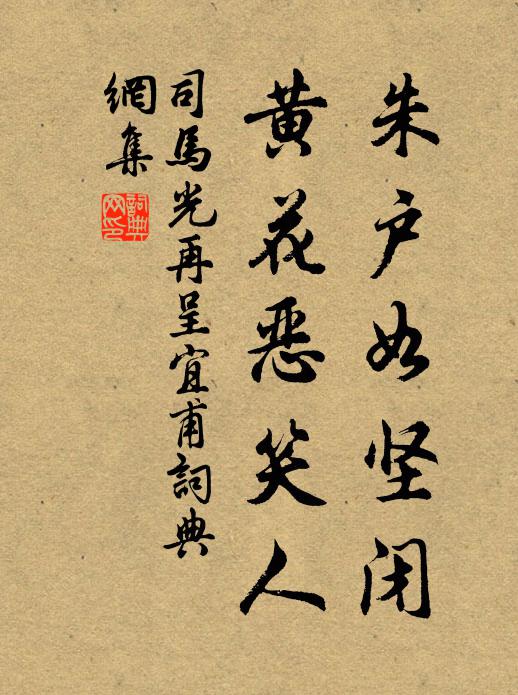 朱户如坚闭
黄花恶笑人
司馬光再呈宜甫詞典
網集
詞典
网印